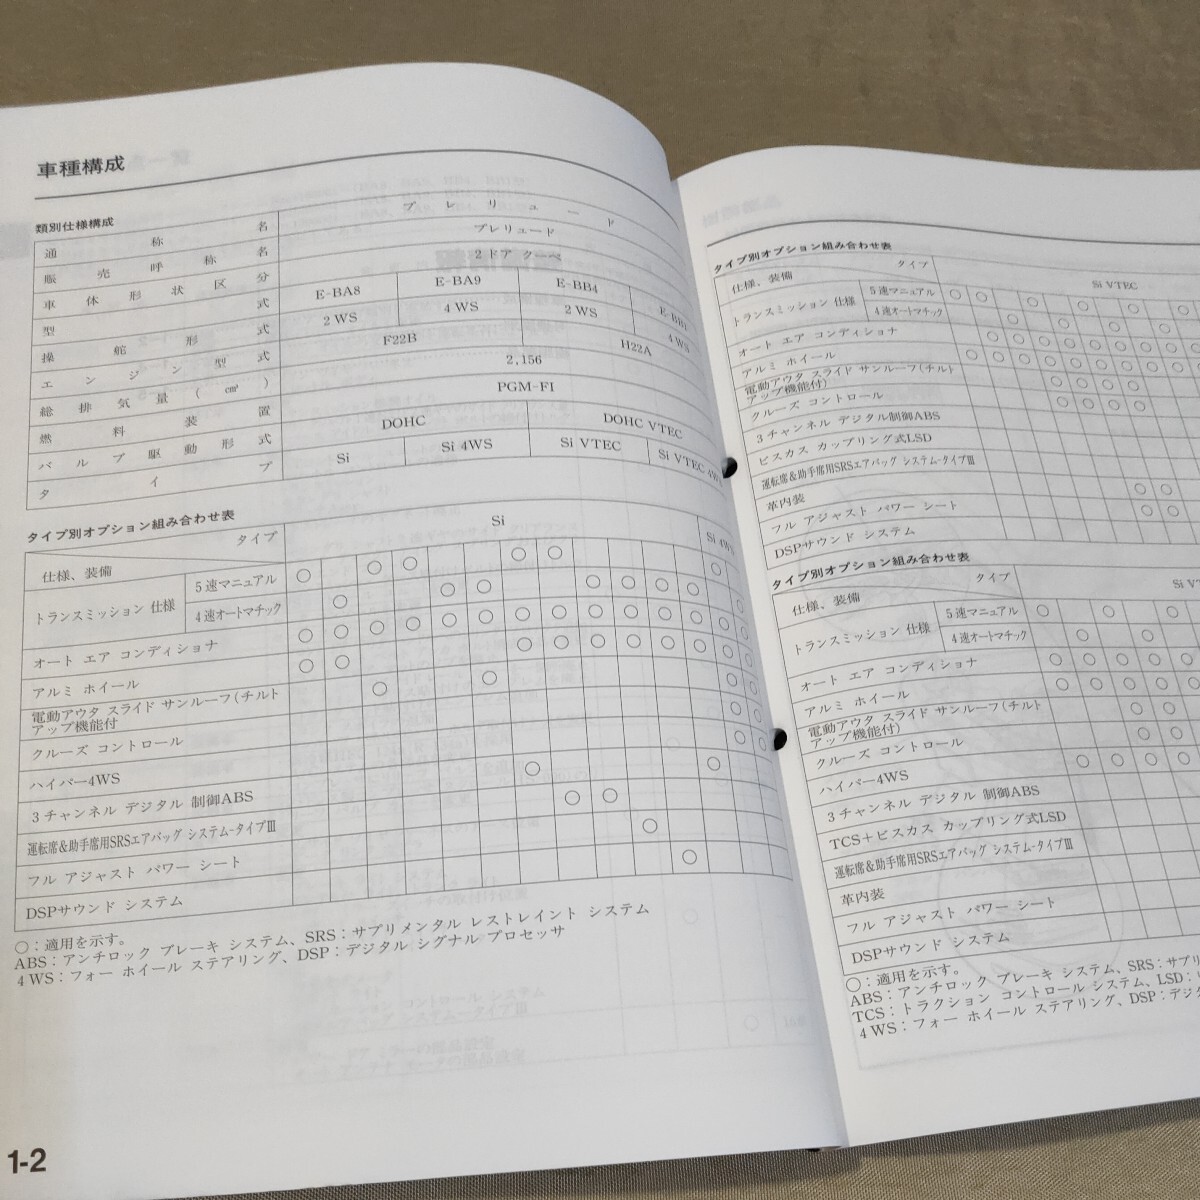 車種構成
類別仕様構成
通称名 プレリュード
販売呼称名 プレリュード
車体形状区分 2ドア クーペ
型式 E-BA8 E-BA9 E-BB4 E-BB1
操舵形式 2WS 4WS 2WS 4WS
エンジン型式 F22B H22A
総排気量(cm³) 2,156
燃料装置 PGM-FI
バルブ駆動形式 DOHC DOHC VTEC
タイプ Si Si 4WS Si VTEC Si VTEC 4W
タイプ別オプション組み合わせ表
タイプ Si Si 4WS
仕様、装備
トランスミッション 仕様 5速マニュアル
4速オートマチック
オート エア コンディショナ
アルミ ホイール
電動アウタ スライド サンルーフ(チルト
アップ機能付)
クルーズ コントロール
ハイパー4WS
3チャンネル デジタル 制御ABS
運転席&助手席用SRSエアバッグ システム-タイプIII
フル アジャスト パワー シート
DSPサウンド システム
○:適用を示す。
ABS:アンチロック ブレーキ システム、SRS:サプリメンタル レストレイント システム
4WS:フォー ホイール ステアリング、DSP:デジタル シグナル プロセッサ
1-2
タイプ別オプション組み合わせ表
タイプ Si VTEC
仕様、装備
トランスミッション 仕様 5速マニュアル
4速オートマチック
オート エア コンディショナ
アルミ ホイール
電動アウタ スライド サンルーフ(チルト
アップ機能付)
クルーズ コントロール
3チャンネル デジタル制御ABS
ビスカス カップリング式LSD
運転席&助手席用SRSエアバッグ システム-タイプIII
革内装
フル アジャスト パワー シート
DSPサウンド システム
タイプ別オプション組み合わせ表
タイプ Si VT
仕様、装備
トランスミッション 仕様 5速マニュアル
4速オートマチック
オート エア コンディショナ
アルミ ホイール
電動アウタ スライド サンルーフ(チルト
アップ機能付)
クルーズ コントロール
ハイパー4WS
3チャンネル デジタル 制御ABS
TCS+ビスカス カップリング式LSD
運転席&助手席用SRSエアバッグ システム-タイプIII
革内装
フル アジャスト パワー シート
DSPサウンド システム
○:適用を示す。
ABS:アンチロック ブレーキ システム、SRS:サプリ
TCS:トラクション コントロール システム、LSD:
4WS:フォー ホイール ステアリング、DSP:デジ